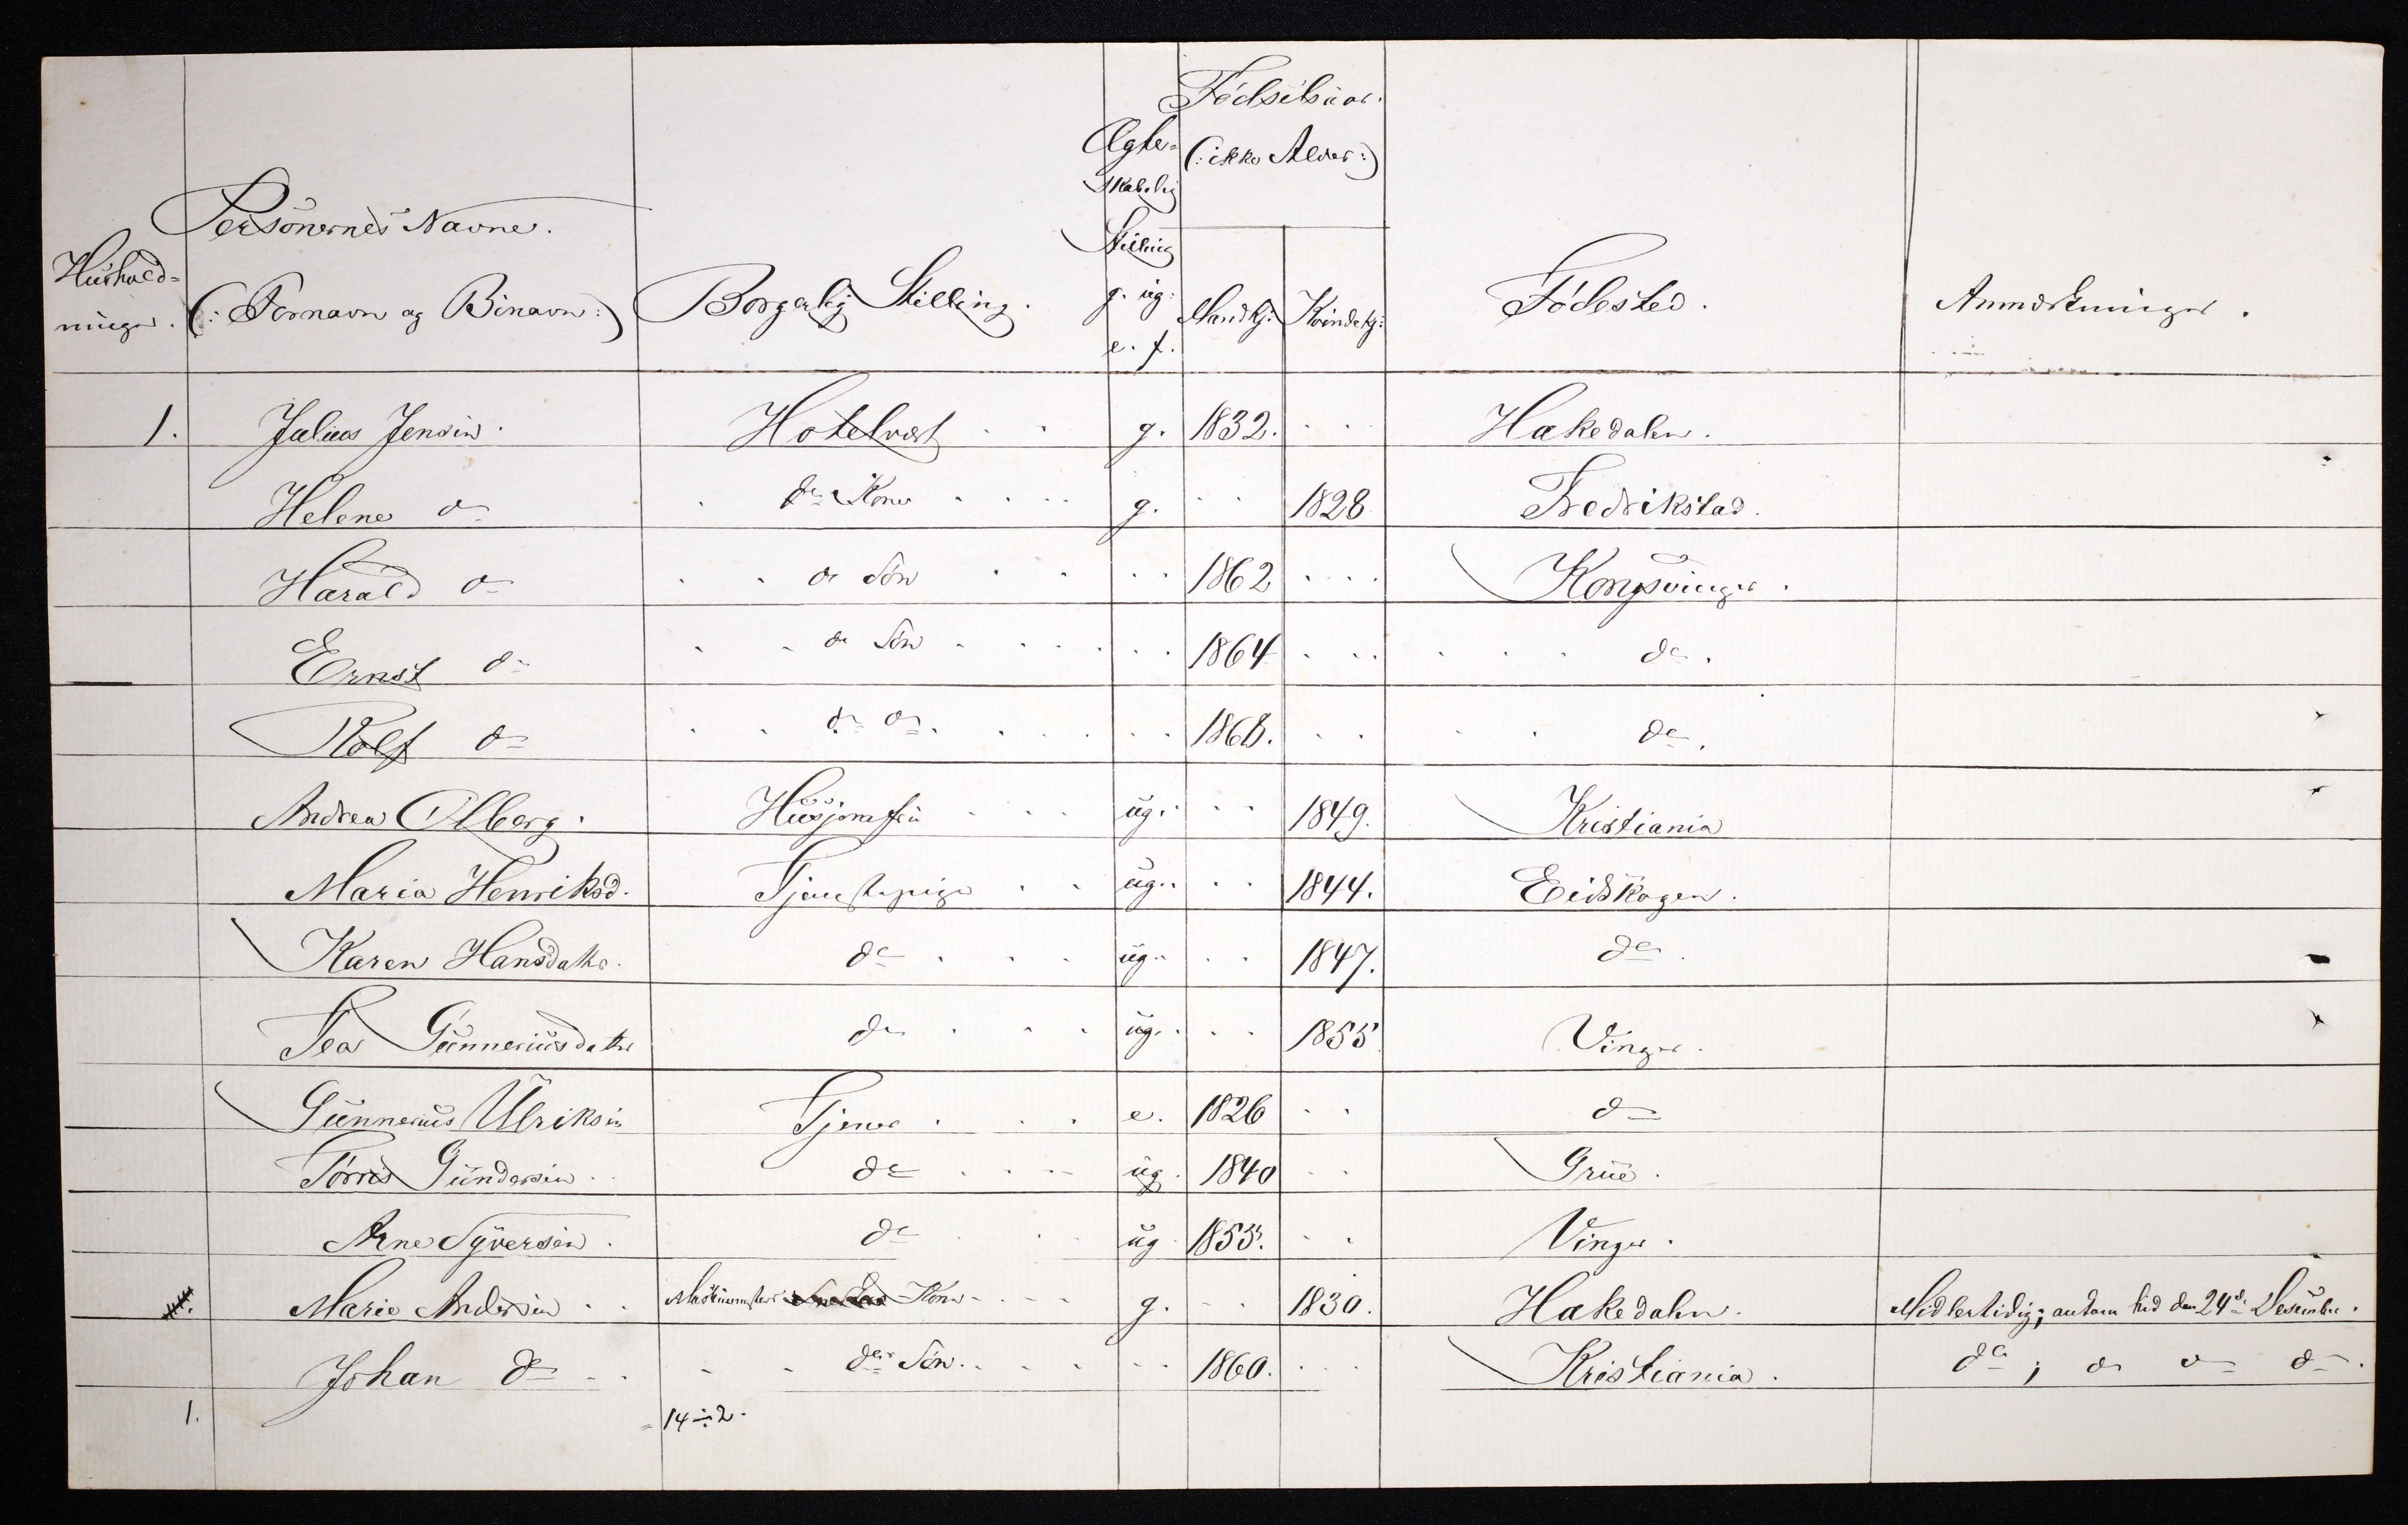 Fødselsaar.
Ægte-
(: ikke Alder :)
skabelig
Personernes Navne.
Stilling
Hushold-
ninger. (: Fornavn og Binavn :) Borgerlig Stilling. g. ug: Mandkj: Kvindekj: Fødested. Anmærkninger.
e. f.
1. Julius Jensen. Hotelvært . . g. 1832. . . . Hakedalen.
Helene do . do Kone . . . . g. . . 1828 Fredrikstad.
Harald do . . do Søn . . . . 1862 . . . Kongsvinger.
Ernst do . . do Søn . . . . . . 1864 . . . . . . do.
Rolf do . . do do. . . . . . 1868. . . . . do.
Andrea Olberg. Husjomfru . . . ug. . . 1849. Kristiania
Maria Henriksd. Tjenestepige . . ug. . . 1844. Eidskogen.
Karen Hansdatr. do . . . ug. . . 1847. do.
Tea Gunneriusdatr do . . . ug. . . 1855 Vinger.
Gunnerius Ulriksen Tjener . . . e. 1826 . . do
Torris Gundersen . . do . . . ug. 1840 . . Grue.
Arne Syversen. do . . ug 1855. . . Vinger.
Marie Andersen . . Maskinmester Kone . . . g. . . 1830. Hakedalen. Midlertidig; ankom hid den 24de Desember.
Johan do . . . . des Søn . . . . . . 1860. . . . Kristiania. do ; do do do.
1. = 14 ÷ 2.